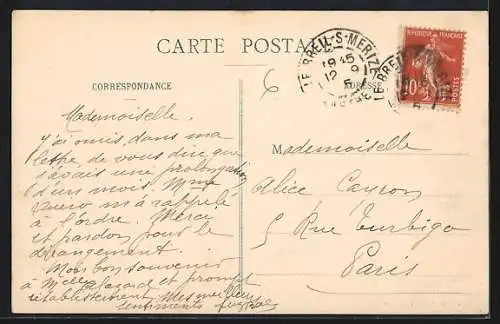 CARTE POSTALE
LE BREIL-S-MERIZE
19 45
12 9
5
SARTHE
RÉPUBLIQUE FRANÇAISE
10
POSTES
CORRESPONDANCE
ADRESSE
6
Mademoiselle,
J'ai omis, dans ma
lettre, de vous dire que
j'avais une prolongation
d'un mois. Mme
m'a rappelé
à l'ordre. Merci
et pardon pour le
dérangement.
Mon bon souvenir
à Melle et prompt
rétablissement. Mes meilleurs
sentiments
Mademoiselle
Alice Cayron
5 Rue Turbigo
Paris